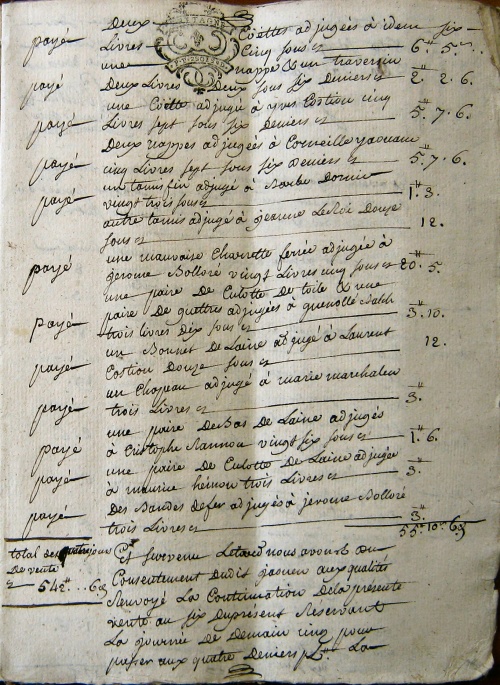 Deux Coëttes adjugées à idem six
payé Livres Cinq sous 6# 5.
une nappe & un traversin
payé Deux Livres Deux sous six Deniers 2# 2. 6.
une Coëtte adjugée à yves Costiou cinq
payé Livres sept sous six Deniers 5# 7. 6.
Deux nappes adjugées à Corneille
payé cinq Livres sept sous six Deniers 5. 7. 6.
un tamis fin adjugé à Barbe
payé vingt trois sous 1# 3.
autre tamis adjugé à jeanne Douze
sous 12.
une mauvaise Charrette ferrée adjugée à
payé jerome Bolloré vingt Livres cinq sous 20# 5.
une paire De Culotte De toile & une
paire De guettres adjugés à guenollé
payé trois livres Dix sous 3# 10.
un Bonnet De Laine adjugé à Laurent
payé Costiou Douze sous 12.
un Chapeau adjugé à marie marchaleu
payé trois Livres 3#
une paire De Bas De Laine adjugés
payé à Cristophe Nannou vingt six sous 1# 6.
une paire De Culotte De Laine adjugée
payé à maurice hémon trois Livres 3#
Des Bandes De fer adjugées à jerome Bolloré
payé trois Livres 3#
55# 10s 6d
total des quatre jours
De vente
542# 6d
Et survenu nous avons du
Consentement Dudit jaouen aux qualités
Renvoyé La Continuation De la présente
vente au six Du présent Reservant
La journée De Demain cinq pour
passer aux quatre Deniers La